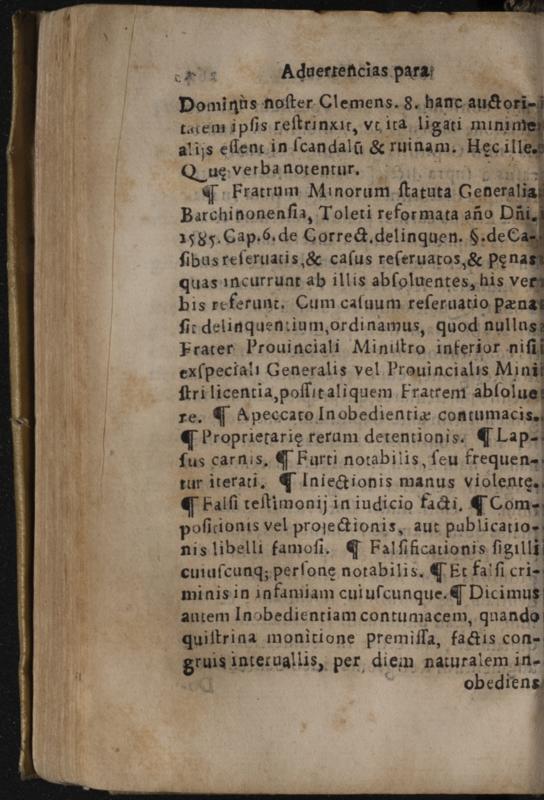 Aduertencias para
Dominus noster Clemens. 8. hanc auctori-
tatem ipsis restrinxit, vt ita ligati minime
alijs essent in scandalũ & ruinam. Hęc ille.
Quę verba notentur.
¶ Fratrum Minorum statuta Generalia
Barchinonensia, Toleti reformata año Dñi.
1585. Cap. 6. de Correct. delinquen. §. de Ca-
sibus reseruatis, & casus reseruatos, & pęnas
quas incurrunt ab illis absoluentes, his ver
bis referunt. Cum casuum reseruatio pæna
sit delinquentium, ordinamus, quod nullus
Frater Prouinciali Ministro inferior nisi
exspeciali Generalis vel Prouincialis Mini
stri licentia, possit aliquem Fratrem absolue
re. ¶ Apeccato Inobedientiæ contumacis.
¶ Proprietarię rerum detentionis. ¶ Lap-
sus carnis. ¶ Furti notabilis, seu frequen-
tur iterati. ¶ Iniectionis manus violentę.
¶ Falsi testimonij in iudicio facti. ¶ Com-
positionis vel proiectionis, aut publicatio-
nis libelli famosi. ¶ Falsificationis sigilli
cuiuscunq; personę notabilis. ¶ Et falsi cri-
minis in infamiam cuiuscunque. ¶ Dicimus
autem Inobedientiam contumacem, quando
quis trina monitione premissa, factis con-
gruis interuallis, per diem naturalem in-
obediens